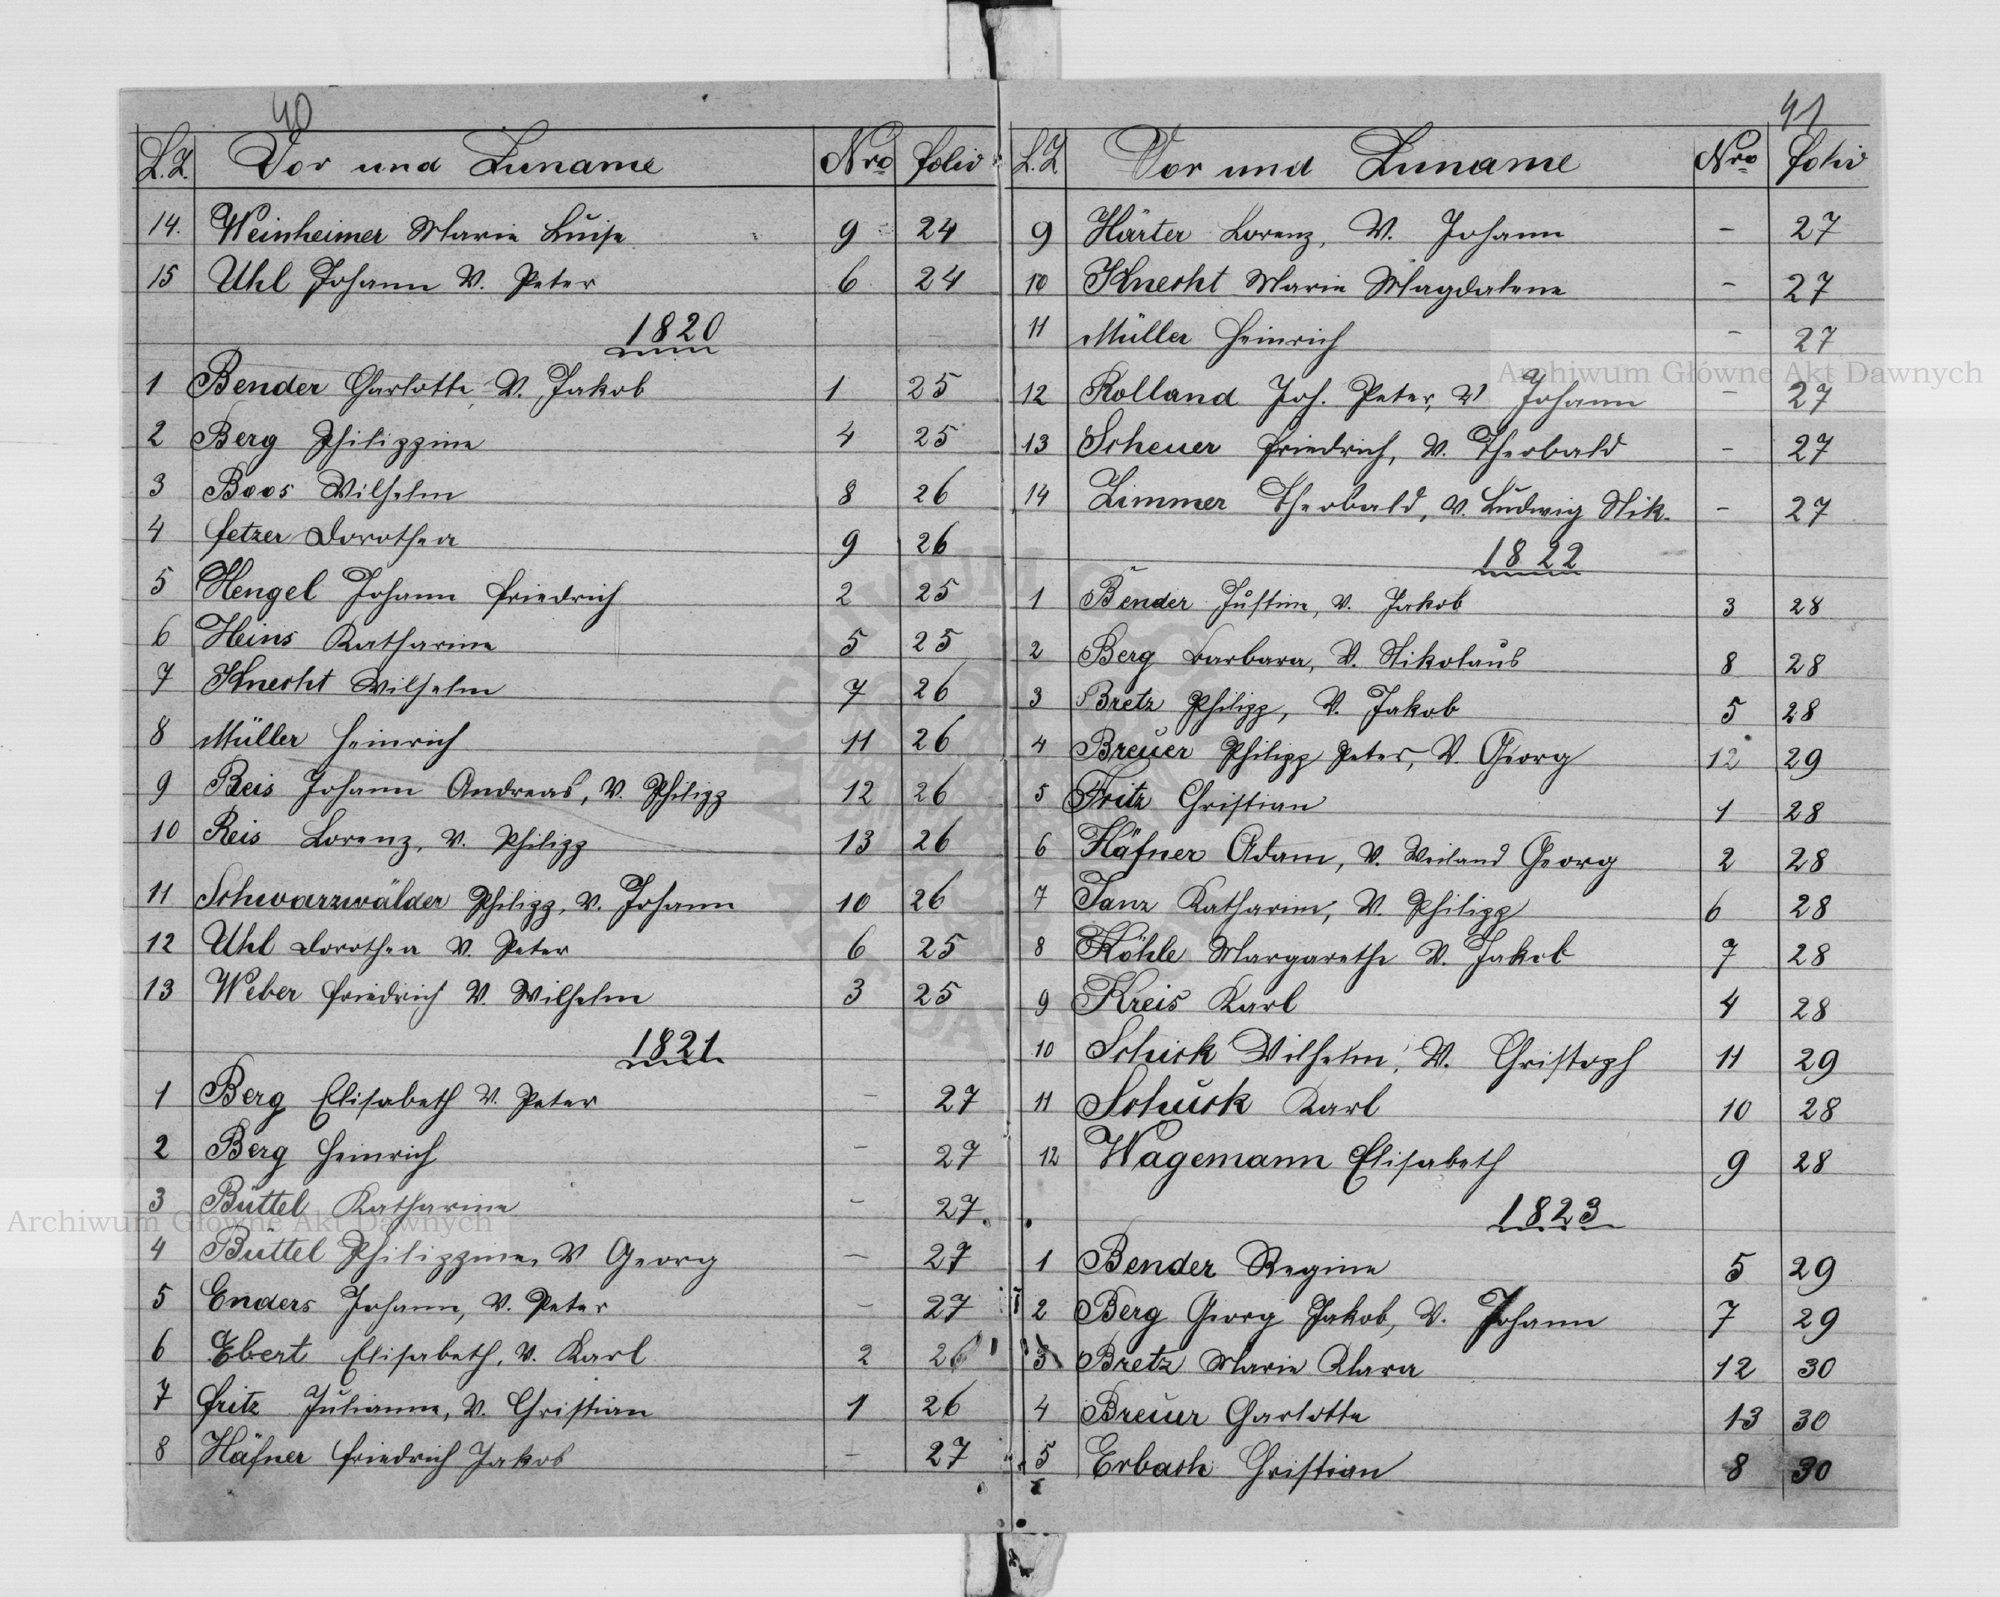 40
L.Z. Vor und Zuname Nro folio
14. Weinheimer Marie Luise 9 24
15 Uhl Johann V. Peter 6 24
1820
1 Bender Charlotte, V. Jakob 1 25
2 Berg Philippine 4 25
3 Boos Wilhelm 8 26
4 Fetzer Dorothea 9 26
5 Hengel Johann Friedrich 2 25
6 Heins Katharine 5 25
7 Knecht Wilhelm 7 26
8 Müller Heinrich 11 26
9 Reis Johann Andreas, V. Philipp 12 26
10 Reis Lorenz, V. Philipp 13 26
11 Schwarzwälder Philipp, V. Johann 10 26
12 Uhl Dorothea V. Peter 6 25
13 Weber Friedrich V. Wilhelm 3 25
1821
1 Berg Elisabeth V. Peter – 27
2 Berg Heinrich – 27
3 Büttel Katharine – 27
4 Büttel Philippine, V Georg – 27
5 Enders Johann, V. Peter – 27
6 Ebert Elisabeth, V. Karl 2 26
7 Fritz Julianne, V. Christian 1 26
8 Häfner Friedrich Jakob – 27
41
L.Z. Vor und Zuname Nro folio
9 Härter Lorenz, V. Johann – 27
10 Knecht Marie Magdalene – 27
11 Müller Heinrich – 27
12 Rolland Joh. Peter, V Johann – 27
13 Scheuer Friedrich, V. Theobald – 27
14 Zimmer Theobald, V. Ludwig Nik. – 27
1822
1 Bender Justine, V. Jakob 3 28
2 Berg Barbara, V. Nikolaus 8 28
3 Bretz Philipp, V. Jakob 5 28
4 Breuer Philipp Peter, V. Georg 12 29
5 Fritz Christian 1 28
6 Häfner Adam, V. Weiland Georg 2 28
7 Janz Katharine, V. Philipp 6 28
8 Köhle Margarethe V. Jakob 7 28
9 Kreis Karl 4 28
10 Schick Wilhelm, V. Christoph 11 29
11 Schuck Karl 10 28
12 Wagemann Elisabeth 9 28
1823
1 Bender Regine 5 29
2 Berg Georg Jakob, V. Johann 7 29
3 Bretz Marie Klara 12 30
4 Breuer Charlotte 13 30
5 Erbach Christian 8 30
Archiwum Główne Akt Dawnych
Archiwum Główne Akt Dawnych